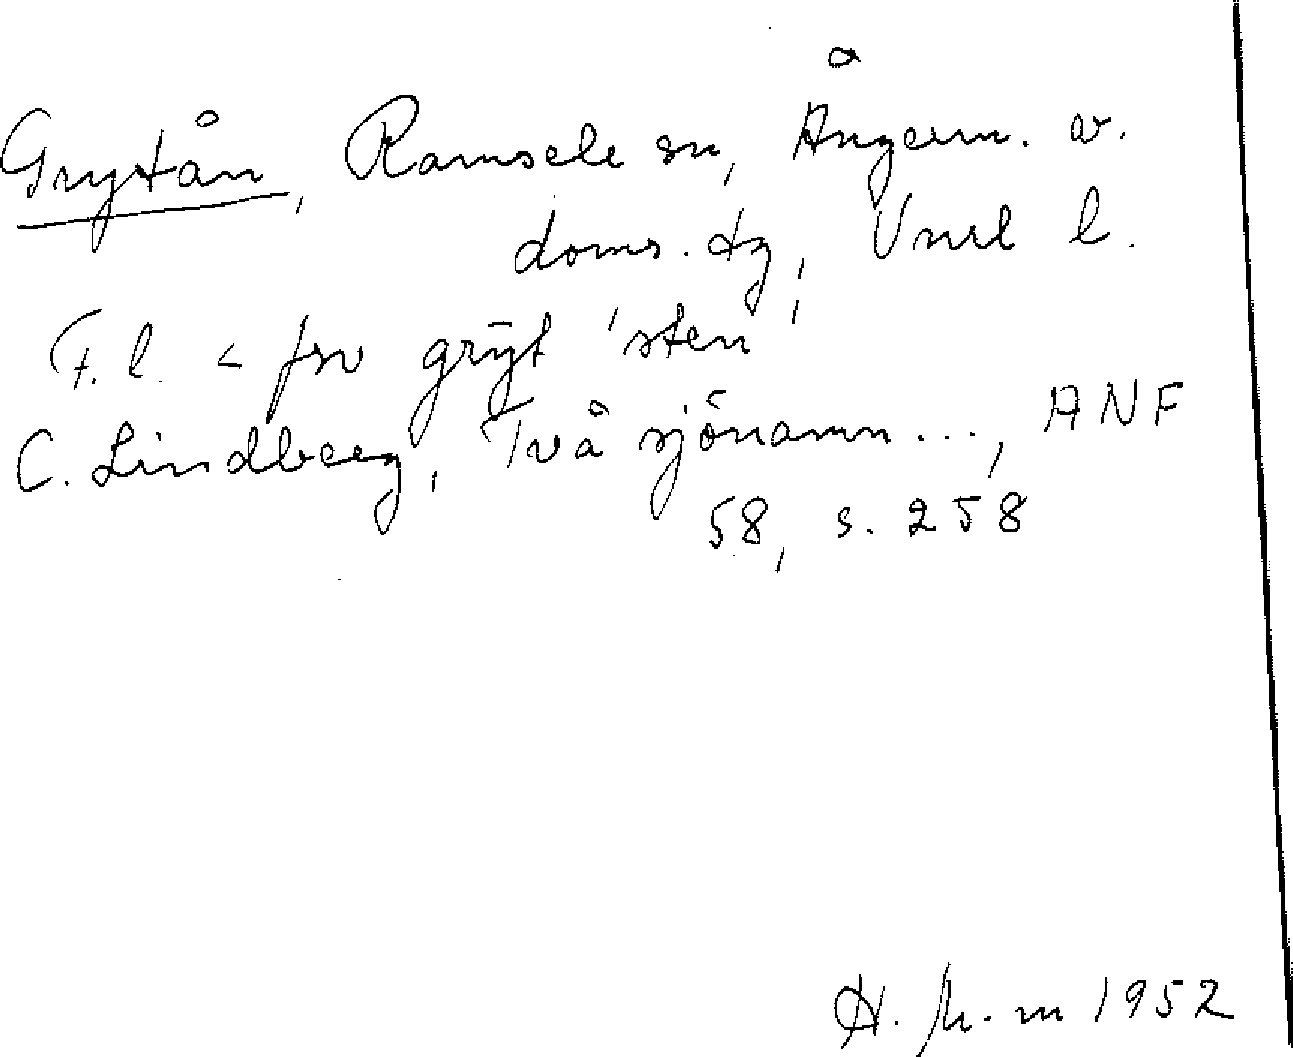 Grytån, Ramsele sn, Ångerm. v.
doms. tg, Vnrl l.
F.l. < fsv grȳt 'sten'
C. Lindberg, Två sjönamn..., ANF
58, s. 258
1952